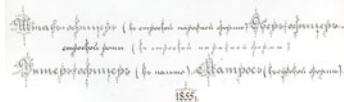 Штабъ-офицеръ (въ строевой парадной формѣ) Оберъ-офицеръ
строевой роты (въ строевой парадной формѣ)
Унтеръ-офицеръ (въ пальто) Матросъ (въ судовой формѣ).
1855 г.